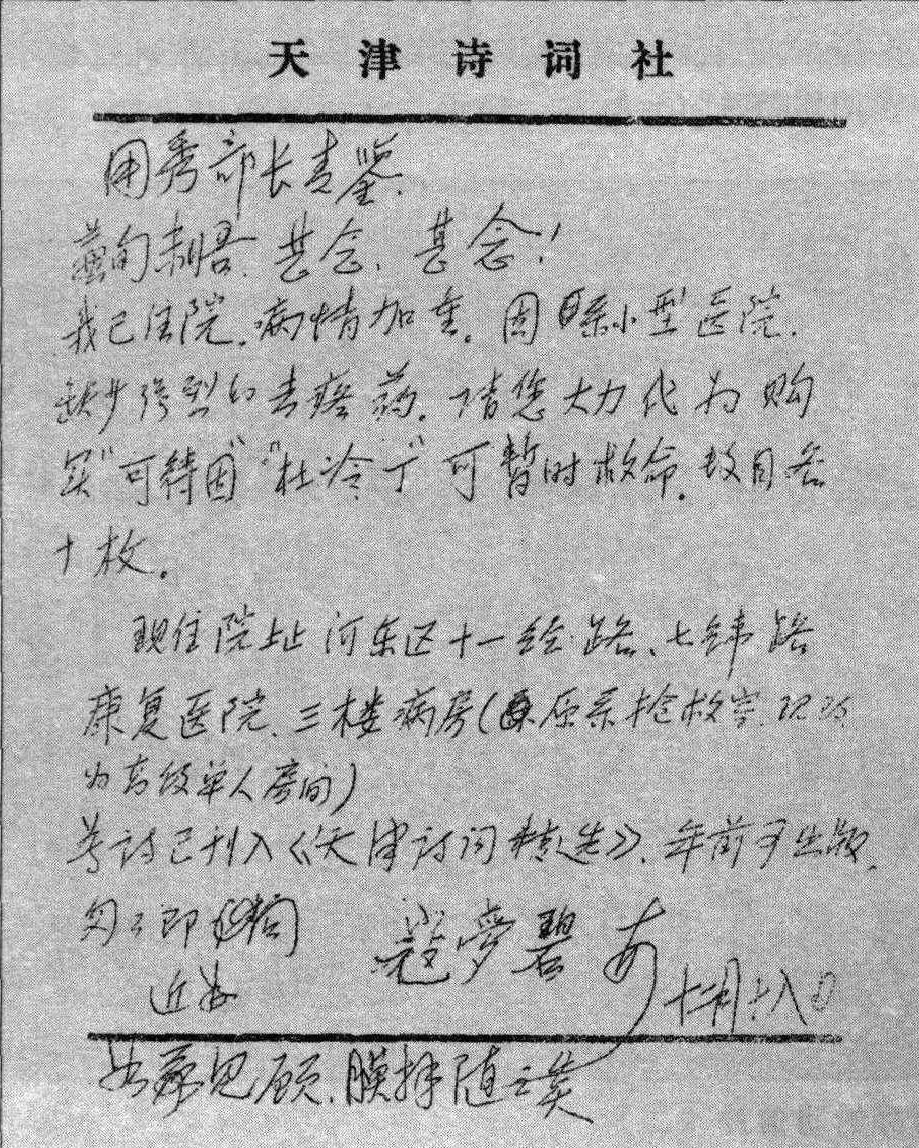 天津诗词社
用秀部长青鉴.
兼旬未晤.甚念、甚念!
我已住院.病情加重.因系小型医院.
缺少强烈的去痰药.请您大力代为购
买“可待因”“杜冷丁”可暂时救命.数目各
十枚。
现住院址河东区十一经路、七纬路
康复医院、三楼病房(原系抢救室.现改
为高级单人房间)
尊诗已刊入《天津诗词精选》、年前可出版.
匆匆即询
近安
寇梦碧
如蒙见顾.膜拜随之矣